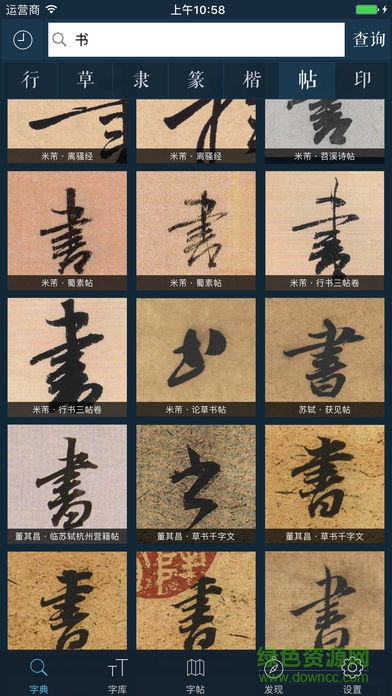 运营商 上午10:58
书 查询
行 草 隶 篆 楷 帖 印
米芾·离骚经 米芾·离骚经 米芾·苕溪诗帖
書 書 書
米芾·蜀素帖 米芾·蜀素帖 米芾·行书三帖卷
書 书 書
米芾·行书三帖卷 米芾·论草书帖 苏轼·获见帖
書 书 書
董其昌·临苏轼杭州营籍帖 董其昌·草书千字文 董其昌·草书千字文
書 書 書
绿色资源网
www.downcc.com
字典 字库 字帖 发现 设置